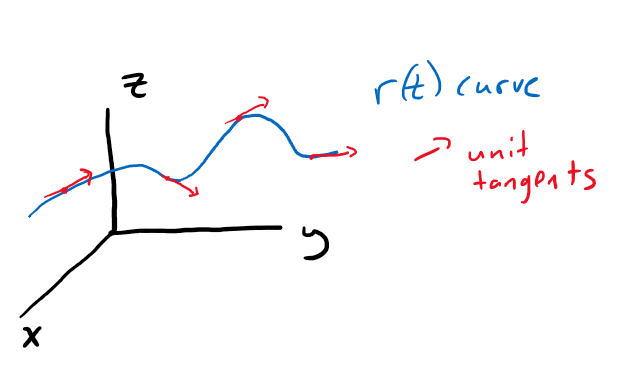 z
r(t) curve
unit
tangents
y
x